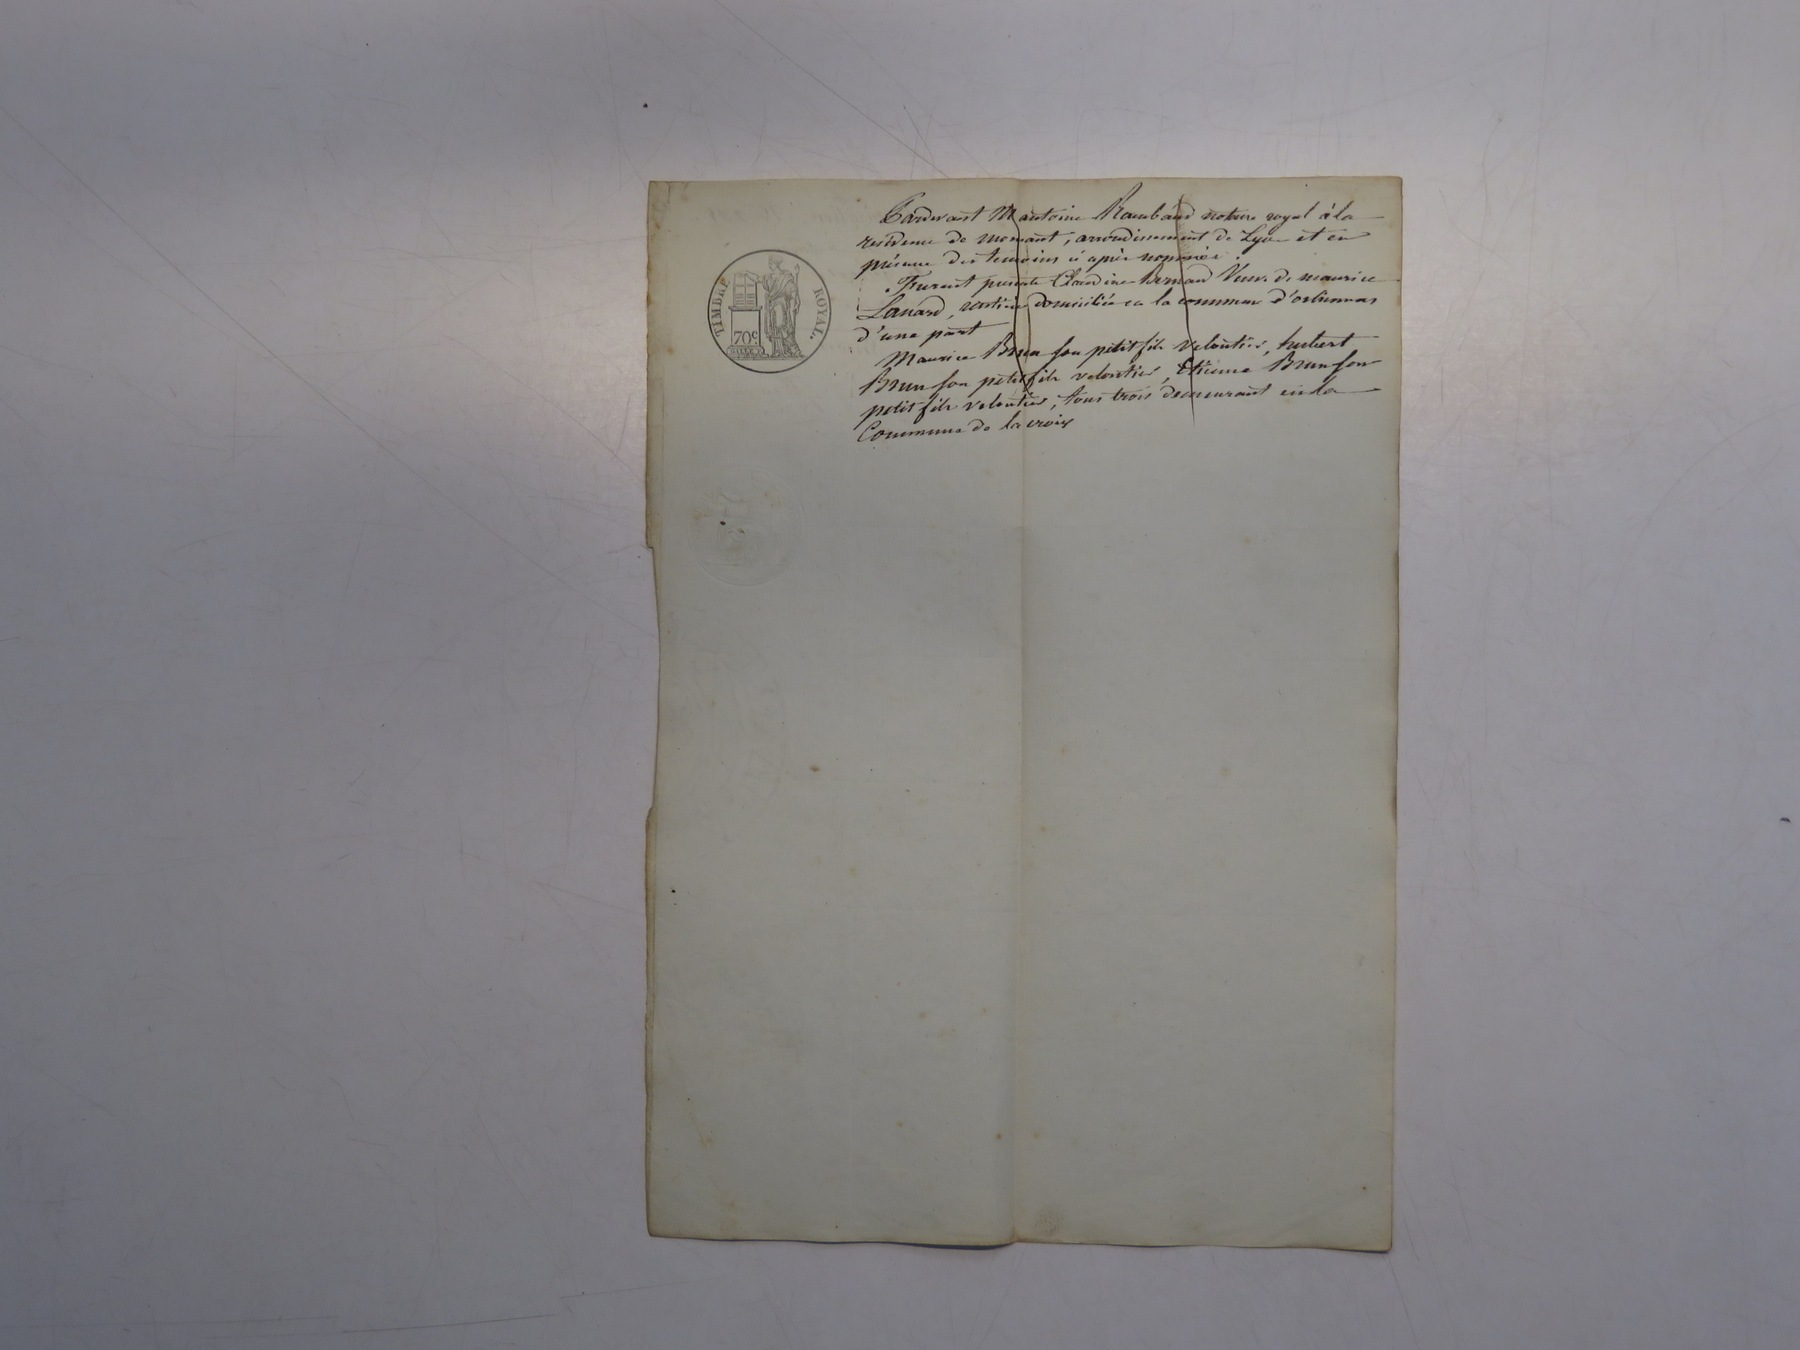 TIMBRE ROYAL.
70c
Pardevant Me antoine Rambaud notaire royal à la
residence de mornant, arrondissement de Lyon et en
présence des temoins ci après nommés :
Furent presents Claudine Arnaud Veuve de maurice
rentière domiciliée en la commune d'orlienas
d'une part
Maurice Brun son petit fils veloutier, hubert
Brun son petit fils veloutier, Etienne Brun son
petit fils veloutier, tous trois demeurant en la
Commune de la croix